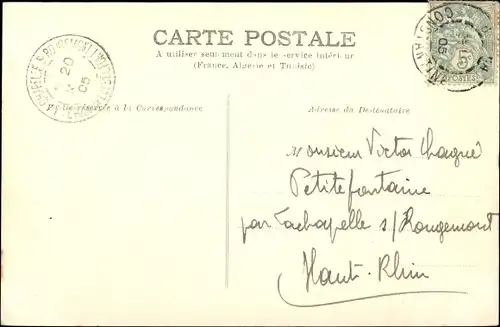 CARTE POSTALE
A utiliser seulement dans le service intérieur
(France, Algérie et Tunisie)
20
05
05
5
POSTES
Partie réservée à la Correspondance
Adresse du Destinataire
Monsieur Victor Chagué
Petitefontaine
par Lachapelle s/ Rougemont
Haut-Rhin